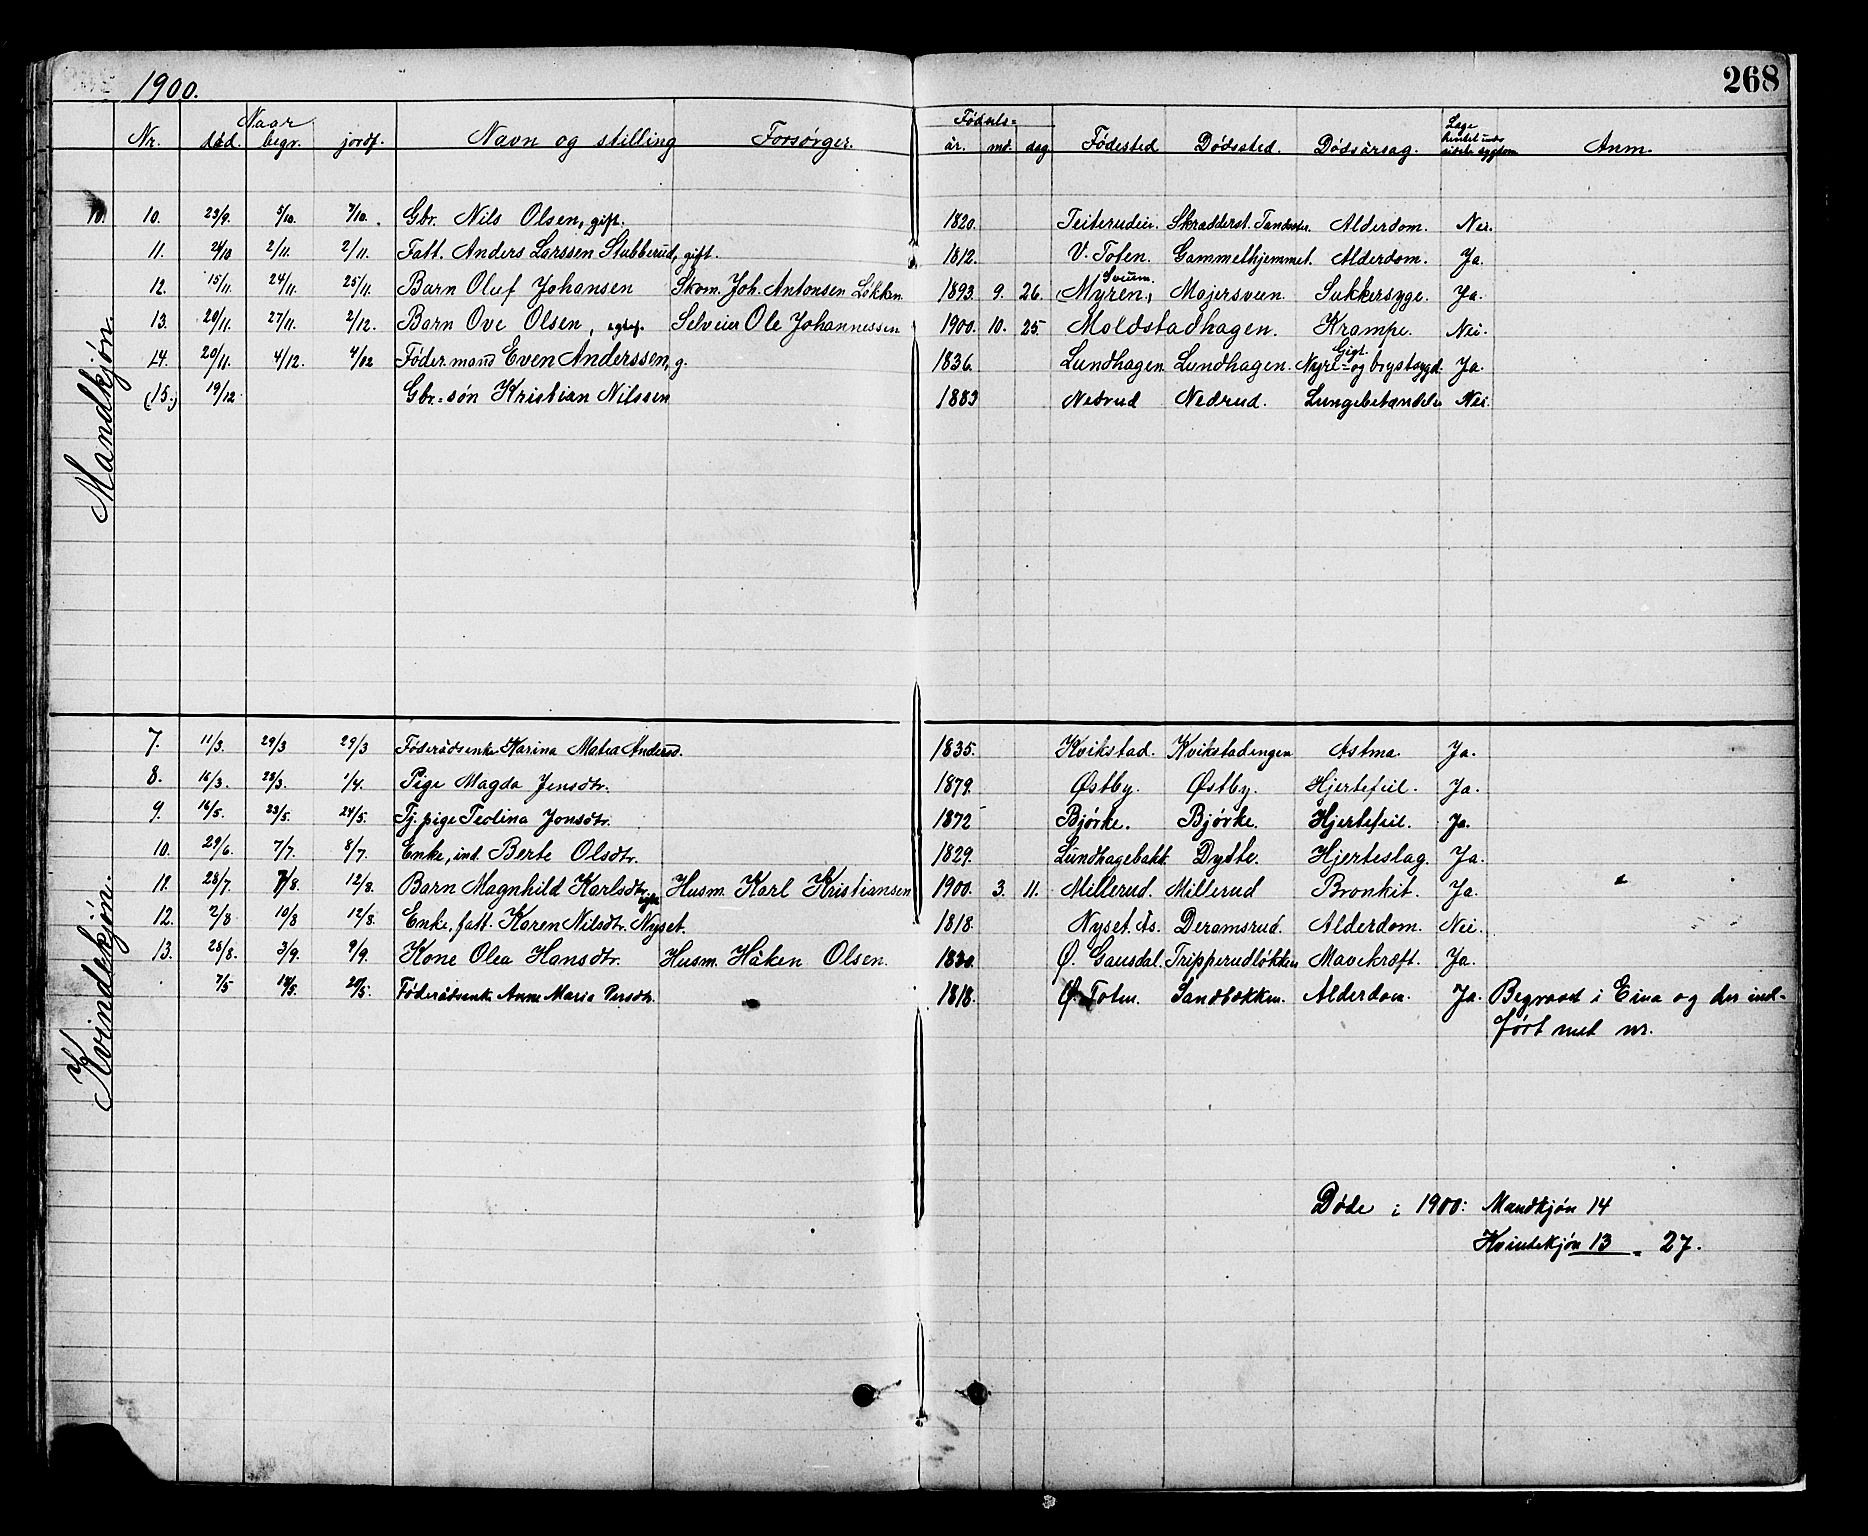 1900.
268
Nr. Naar død. begr. jordf. Navn og stilling Forsørger. Fødsels= år. md. dag Fødested Dødssted. Dødsårsag. Læge Anm.
Mandkjøn.
10. 10. 23/9. 5/10. 7/10. Gbr. Nils Olsen, gift. 1820. Teiterudeie. Skrædderst. Alderdom. Nei.
11. 24/10 2/11. 2/11. Fatt. Anders Larssen Stubberud, gift. 1812. V. Toten. Gammelhjemmet. Alderdom. Ja.
12. 15/11. 24/11. 25/11. Barn Oluf Johansen Skom. Joh. Antonsen Løkken 1893. 9. 26. Myren, Sveum. Majersveen. Sukkersyge. Ja.
13. 20/11. 27/11. 2/12. Barn Ove Olsen, Selveier Ole Johannessen 1900. 10. 25. Moldstadhagen. Krampe. Nei.
14. 20/11. 4/12. 4/12 Føder.mand Even Anderssen, g. 1836. Lundhagen Lundhagen. Nyre- Gigt. og brystsygd. Ja.
(15.) 19/12. Gbr.=søn Kristian Nilssen 1883 Nedrud Nedrud. Lungebetændelse Nei.
Kvindekjøn.
7. 11/3. 29/3 29/3 Føderådsenke Karina Matea Andersd. 1835. Kvikstad. Kvikstadengen Astma. Ja.
8. 16/3. 28/3. 1/4. Pige Magda Jensdtr. 1879. Østby. Østby. Hjertefeil. Ja.
9. 16/5. 23/5. 24/5. Tj.pige Teolina Jonsdtr. 1872 Bjørke. Bjørke. Hjertefeil. Ja.
10. 29/6. 7/7. 8/7. Enke, ind. Berte Olsdtr. 1829. Lundhagebakk. Dyste. Hjerteslag. Ja.
11. 28/7. 7/8. 12/8. Barn Magnhild Karlsdtr. Husm. Karl Kristiansen 1900. 3. 11. Millerud. Millerud Bronkit. Ja.
12. 2/8. 10/8 12/8. Enke, fatt. Karen Nilsdtr. Nyset. 1818. Nyset. Ås. Deramsrud. Alderdom. Nei.
13. 28/8. 3/9. 9/9. Kone Olea Hansdtr. Husm. Håken Olsen. 1830. Ø. Gausdal. Tripperudløkken Mavekræft. Ja.
7/5 18/5. 20/5. Føderådsenke Anne Maria Persdtr. 1818. Ø. Toten. Sandbakken. Alderdom. Ja. Begravet i Eina og der ind-
ført med nr.
Døde i 1900: Mandkjøn 14
Kvindekjøn 13 = 27.